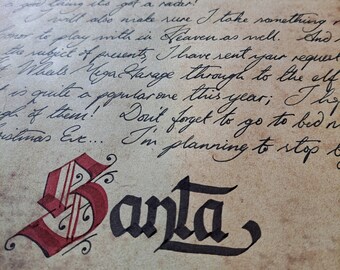 you bring its got a radar!
I will also make sure I take something n
to play with in Heaven as well. And
the subject of presents, I have sent your request
Whale Mega Garage through to the elf
it is quite a popular one this year; I hop
gh of them! Don't forget to go to bed n
ristmas Eve... I'm planning to stop b
Santa